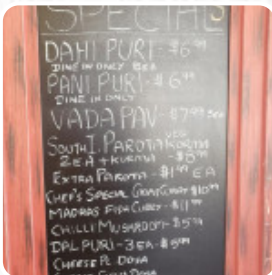 SPECIAL
DAHI PURI - $6.99
DINE IN ONLY 8EA
PANI PURI - $6.99
DINE IN ONLY
VADA PAV - $7.99 5EA
VEG
SOUTH I. PAROTA KORMA
2EA + KURMA - $8.99
EXTRA PAROTA - $1.99 EA
CHEF'S SPECIAL GOAT CURRY $10.99
MADRAS FISH CURRY - $11.99
CHILLI MUSHROOM - $5.99
DAL PURI - 3EA - $5.99
CHEESE PL DOSA
DOSA